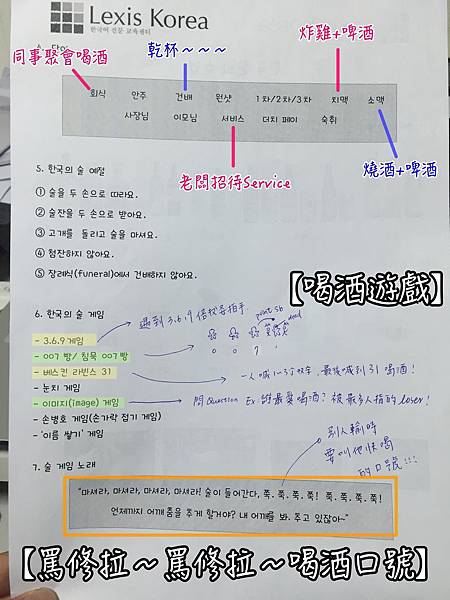 Lexis Korea
한국어 전문 교육센터
炸雞+啤酒
乾杯~~~
同事聚會喝酒
회식 안주 건배 원샷 1차/2차/3차 치맥 소맥
사장님 이모님 서비스 더치 페이 숙취
燒酒+啤酒
老闆招待Service
5. 한국의 술 예절
① 술을 두 손으로 따라요.
② 술잔을 두 손으로 받아요.
③ 고개를 돌리고 술을 마셔요.
④ 첨잔하지 않아요.
⑤ 장례식(funeral)에서 건배하지 않아요.
【喝酒遊戲】
6. 한국의 술 게임
- 3.6.9 게임
遇到 3.6.9 倍數要拍手
point sb
dead
- 007 빵/ 침묵 007빵
0 0 7
- 베스킨 라빈스 31
一人喊1~3個數字,最後喊到31喝酒!
- 눈치 게임
- 이미지(image) 게임
問Question Ex:誰最愛喝酒? 被最多人指的loser!
- 손병호 게임(손가락 접기 게임)
- '이름 쌓기' 게임
別人輸時
要叫他快喝
的口號!!!
7. 술 게임 노래
"마셔라, 마셔라, 마셔라, 마셔라! 술이 들어간다, 쭉. 쭉. 쭉. 쭉! 쭉. 쭉. 쭉. 쭉!
언제까지 어깨 춤을 추게 할거야? 내 어깨를 봐. 추고 있잖아~"
【罵修拉~罵修拉~喝酒口號】